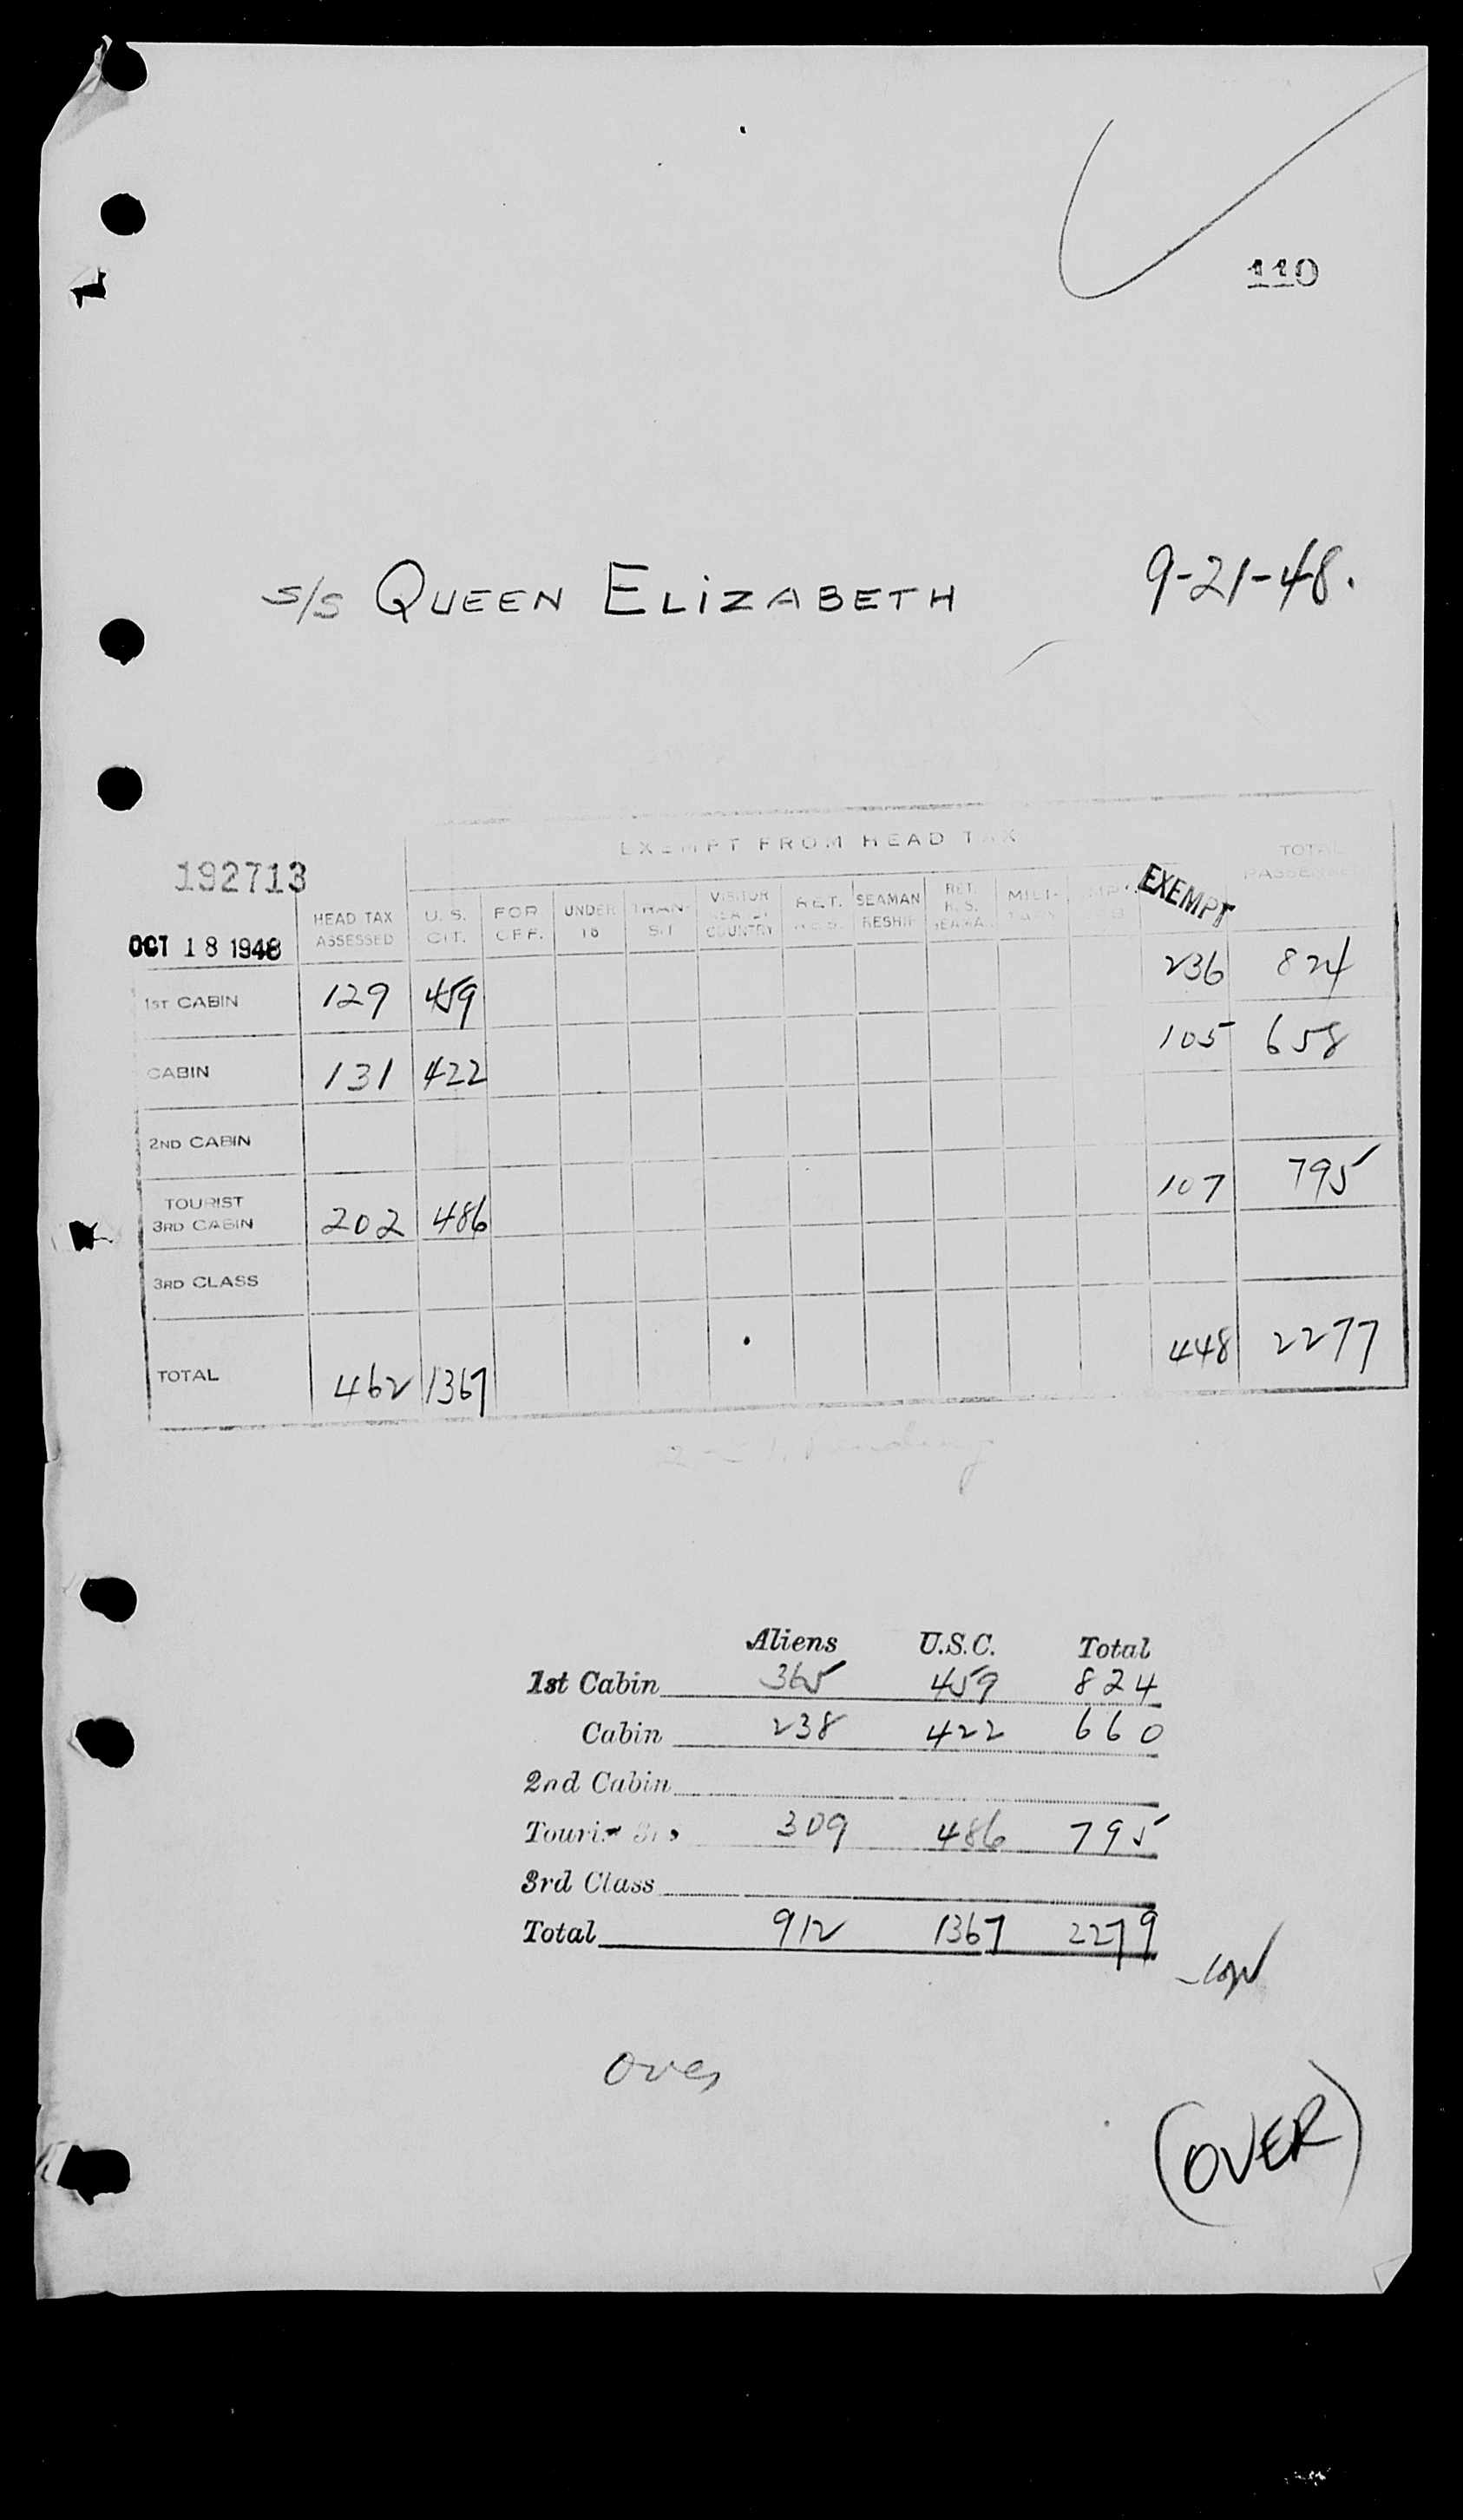 110
s/s QUEEN ELIZABETH 9-21-48.
EXEMPT FROM HEAD TAX
192713
OCT 18 1948
HEAD TAX ASSESSED U. S. CIT. FOR OFF. UNDER 16 TRAN- SIT VISITOR COUNTRY RET. SEAMAN RESHIP RET. MILI- EXEMPT TOTAL PASSENGER
1ST CABIN 129 459 236 824
CABIN 131 422 105 658
2ND CABIN
TOURIST
3RD CABIN 202 486 107 795
3RD CLASS
TOTAL 462 1367 448 2277
Aliens U.S.C. Total
1st Cabin 365 459 824
Cabin 238 422 660
2nd Cabin
Tourist 309 486 795
3rd Class
Total 912 1367 2279
Over
(OVER)